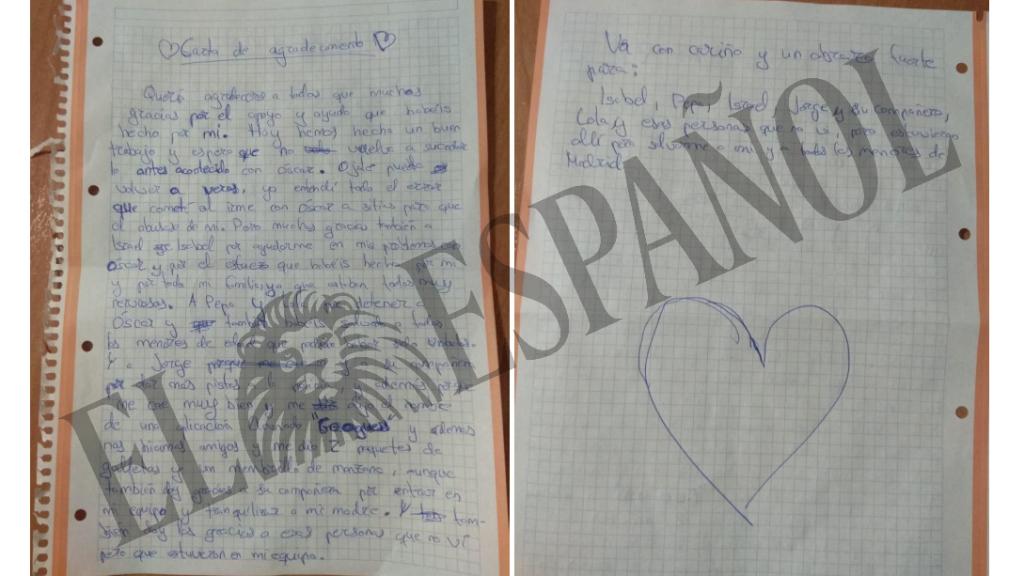 Carta de agradecimento
Quería agradeceros a todos que muchas
gracias por el apoyo y ayuda que habéis
hecho por mi. Hoy hemos hecho un buen
trabajo y espero que no vuelva a suceder
lo antes acontecido con óscar. Ojala pueda
volver a veros, yo entendí todo el error
que cometí al irme con óscar a sitios para que
el abusara de mi. Pero muchas gracias también a
Israel Isabel por ayudarme en mis problemas
óscar y por el que habéis hecho por mi
y por toda mi familia, ya que estaban todos muy
nerviosos. A Pepa y Lola por detener a
Óscar y también habéis salvado a todos
los menores de edad que podrían haber sido
Y a Jorge y su compañera
por dar mas pistas a la y además porque
me cae muy bien y me dijo el nombre
de una aplicación llamada "Geoguess" y además
nos hicimos amigos y me dio 2 paquetes de
galletas y un membrillo de manzana, aunque
también doy gracias a su compañera por entrar en
mi equipo y tranquilizar a mi madre. Y tam-
bién doy las gracias a esas personas que no vi
pero que estuvieron en mi equipo.
Va con cariño y un abrazo fuerte
para:
Isabel, Pepa, Israel, Jorge y su compañera,
Lola y esas personas que no vi, pero estuvieron
allí para salvarme a mi y a todos los menores de
Madrid.
EL ESPAÑOL